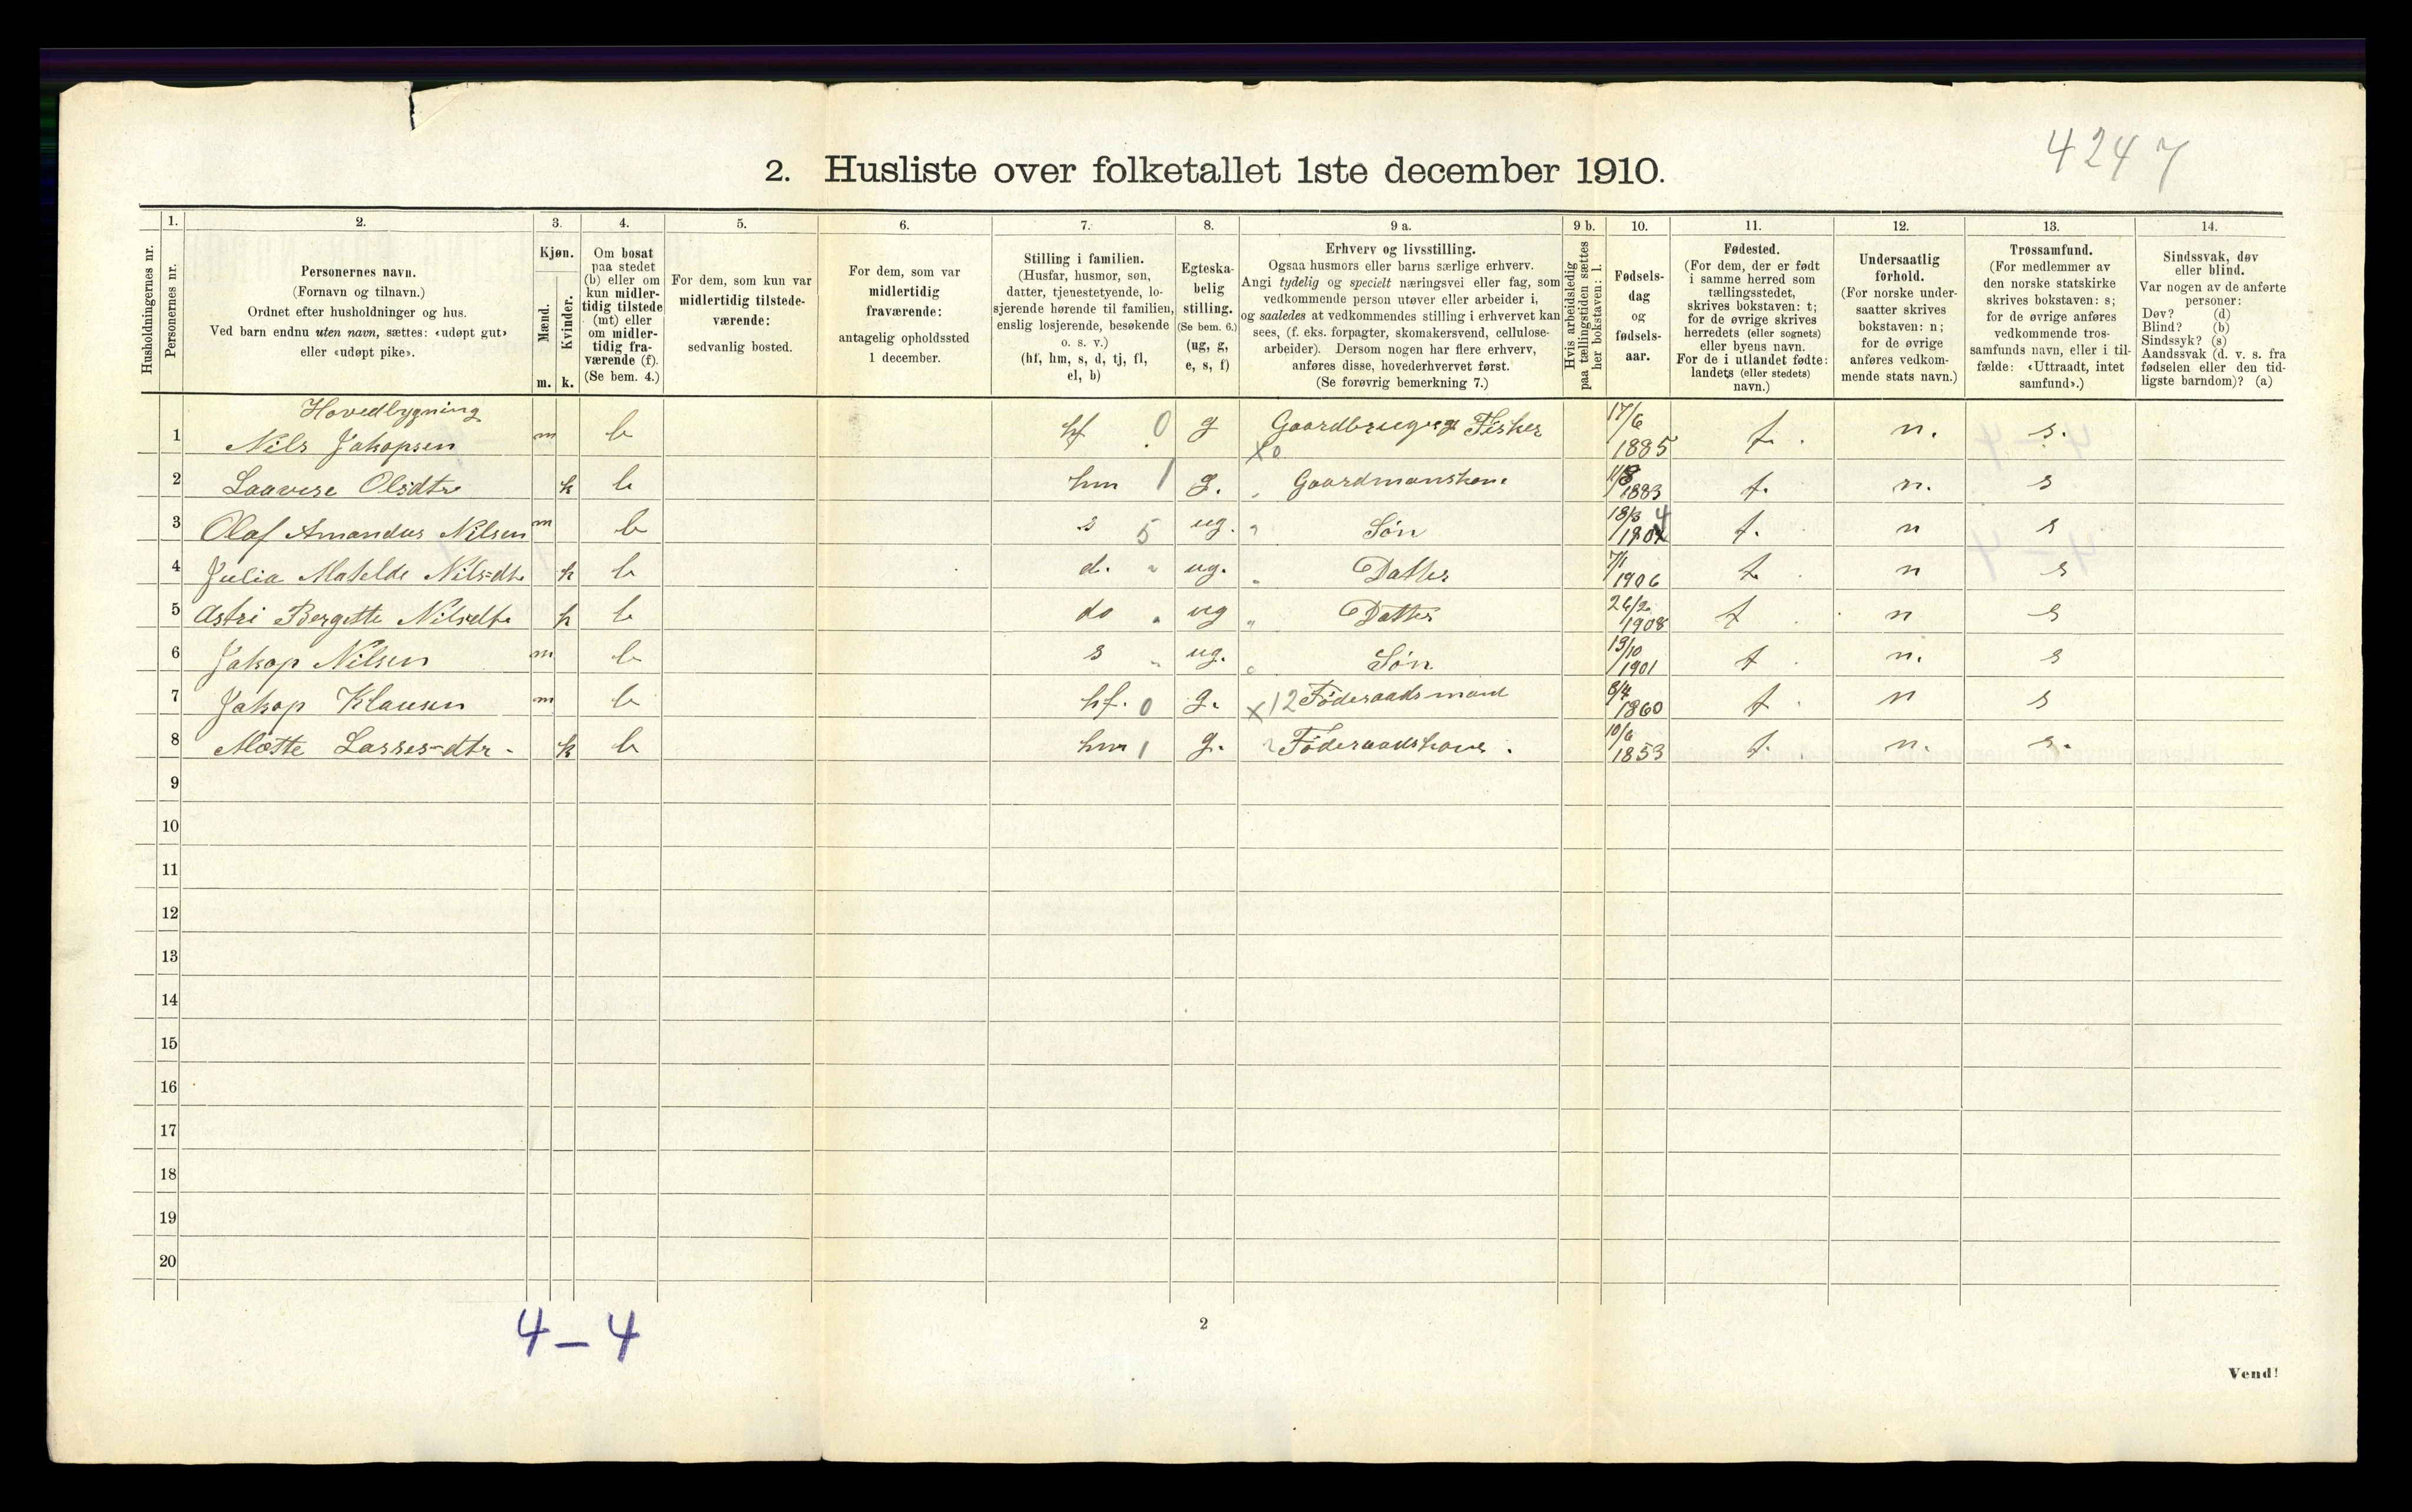 4247
2. Husliste over folketallet 1ste december 1910.
Husholdningernes nr.
1.
Personernes nr.
2.
Personernes navn.
(Fornavn og tilnavn.)
Ordnet efter husholdninger og hus.
Ved barn endnu uten navn, sættes: «udøpt gut»
eller «udøpt pike».
3.
Kjøn.
Mænd.
Kvinder.
m. k.
4.
Om bosat
paa stedet
(b) eller om
kun midler-
tidig tilstede
(mt) eller
om midler-
tidig fra-
værende (f).
(Se bem. 4.)
5.
For dem, som kun var
midlertidig tilstede-
værende:
sedvanlig bosted.
6.
For dem, som var
midlertidig
fraværende:
antagelig opholdssted
1 december.
7.
Stilling i familien.
(Husfar, husmor, søn,
datter, tjenestetyende, lo-
sjerende hørende til familien,
enslig losjerende, besøkende
o. s. v.)
(hf, hm, s, d, tj, fl,
el, b)
8.
Egteska-
belig
stilling.
(Se bem. 6.)
(ug, g,
e, s, f)
9 a.
Erhverv og livsstilling.
Ogsaa husmors eller barns særlige erhverv.
Angi tydelig og specielt næringsvei eller fag, som
vedkommende person utøver eller arbeider i,
og saaledes at vedkommendes stilling i erhvervet kan
sees, (f. eks. forpagter, skomakersvend, cellulose-
arbeider). Dersom nogen har flere erhverv,
anføres disse, hovederhvervet først.
(Se forøvrig bemerkning 7.)
9 b.
Hvis arbeidsledig
paa tællingstiden sættes
her bokstaven: l.
10.
Fødsels-
dag
og
fødsels-
aar.
11.
Fødested.
(For dem, der er født
i samme herred som
tællingsstedet,
skrives bokstaven: t;
for de øvrige skrives
herredets (eller sognets)
eller byens navn.
For de i utlandet fødte:
landets (eller stedets)
navn.)
12.
Undersaatlig
forhold.
(For norske under-
saatter skrives
bokstaven: n;
for de øvrige
anføres vedkom-
mende stats navn.)
13.
Trossamfund.
(For medlemmer av
den norske statskirke
skrives bokstaven: s;
for de øvrige anføres
vedkommende tros-
samfunds navn, eller i til-
fælde: «Uttraadt, intet
samfund».)
14.
Sindssvak, døv
eller blind.
Var nogen av de anførte
personer:
Døv? (d)
Blind? (b)
Sindssyk? (s)
Aandssvak (d. v. s. fra
fødselen eller den tid-
ligste barndom)? (a)
Hovedbygning
1 Nils Jakopsen m b hf 0 g Fisker x0 17/6 1885 t. n. s.
2 Olsdtr k b hm 1 g. 1883 t. n. s
3 Olaf Amandus Nilsen m b s 5 ug. " Søn 18/3 4 t. n s
4 Julia Matelde Nilsdtr k b d. " ug. " Datter 7/1 1906 t n s
5 Astri Bergette Nilsdtr k b do " ug " Datter 26/2 1908 t n s
6 Jakop Nilsen m b s " ug. Søn 13/10 1901 t n. s
7 Jakop Klausen m b hf. 0 g. x 12 Föderaadsmand 8/4 1860 t n s
8 Mætte Lasses-dtr. k b hm 1 g. Föderaadskone. 10/6 1853 t. n. s.
9
10
11
12
13
14
15
16
17
18
19
20
4–4
2
Vend!